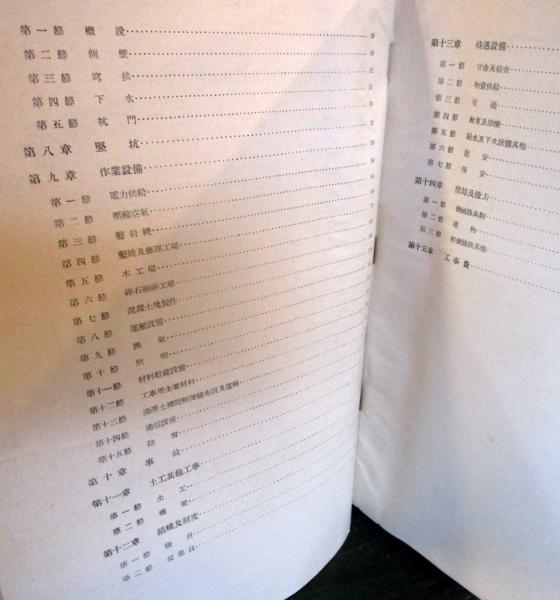 第一節 概說
第二節 側壁
第三節 穹拱
第四節 下水
第五節 坑門
第八章 竪坑
第九章 作業設備
第一節 電力供給
第二節 壓縮空氣
第三節 鑿岩機
第四節 鑿燒及修理工場
第五節 木工場
第六節 碎石細砂工場
第七節 混凝土塊製作
第八節 運搬設備
第九節 換氣
第十節 照明
第十一節 材料貯藏設備
第十二節 工事用主要材料
第十三節
第十四節 通信設備
第十五節 防
第十章 事故
第十一章 土工其他工事
第一節 土工
第二節 橋梁
第十二章 組織及制度
第一節 職員
第二節 從業員
第十三章 待遇設備
第一節 官舍及宿舍
第二節 物資供給
第三節 交通
第四節 敎育及治療
第五節 給水及下水設備其他
第六節 慰安
第七節 保安
第十四章 償却及撤去
第一節 機械器具類
第二節 建物
第三節 輕便線路其他
第十五章 工事費